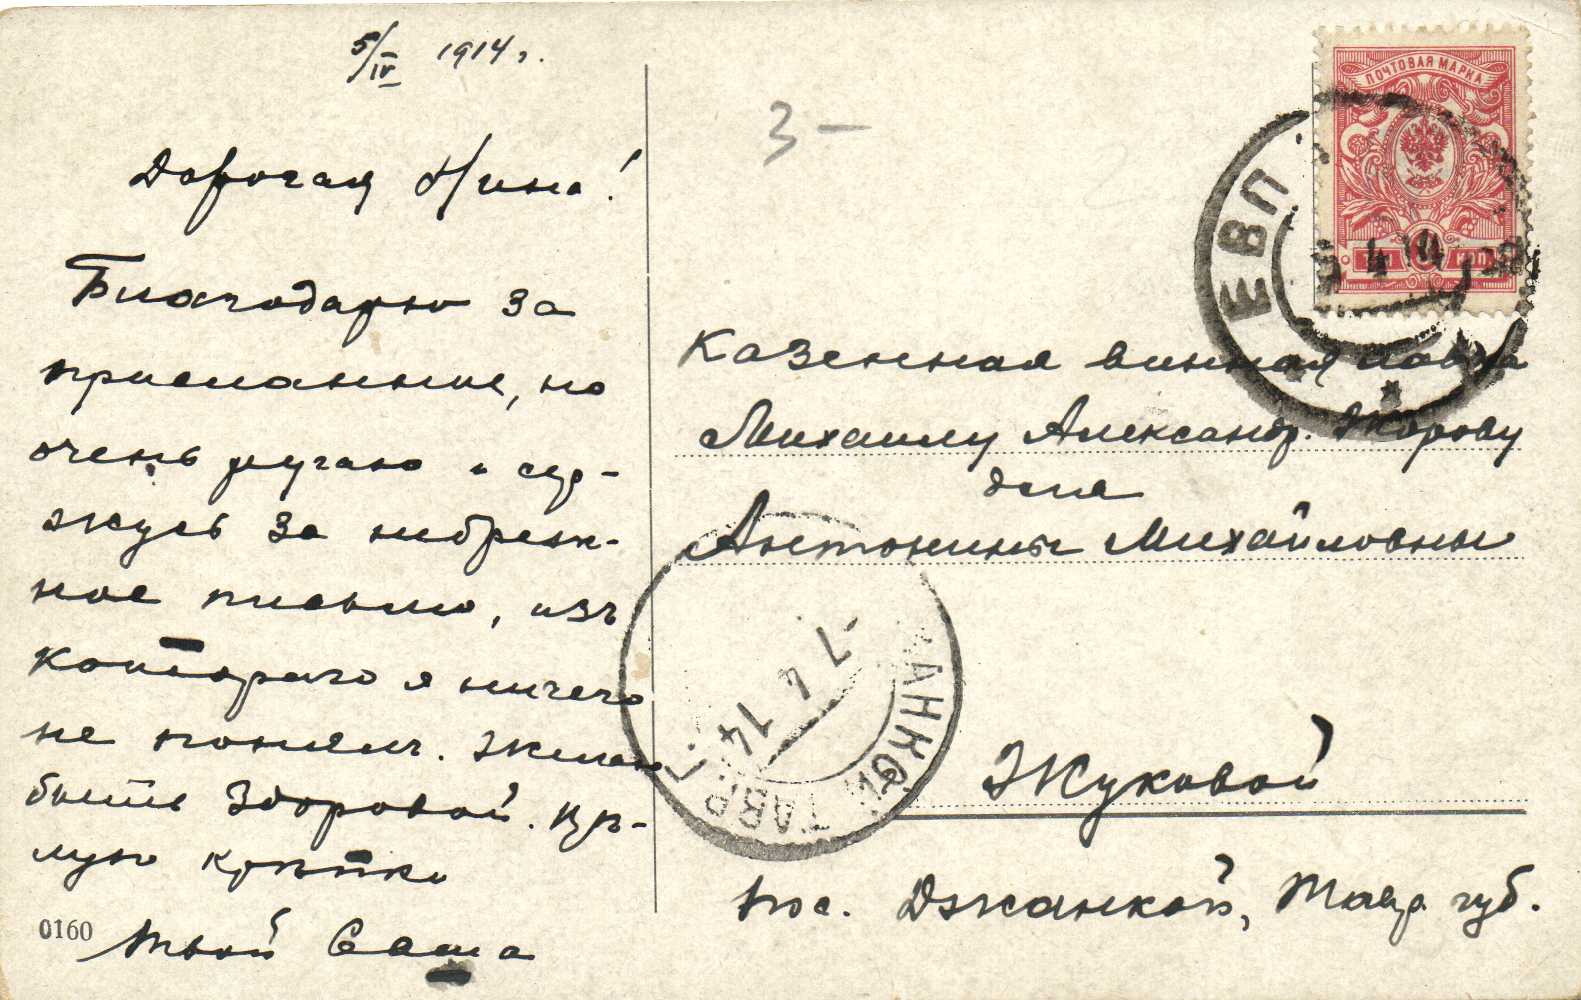 5/IV 1914 г.
Дорогая Нина!
Благодарю за
приглашение, но
очень ругаю и сер-
жусь за небреж-
ное письмо, изъ
котораго я ничего
не понялъ. Желаю
быть здоровой. Цѣ-
лую крѣпко
Твой Саша
0160
3 —
ПОЧТОВАЯ МАРКА
ЕВП
4 IV 14
КОП
Казенная винная лавка
Михаилу Александр. Жорову
для
Антонины Михайловны
Жуковой
пос. Джанкой, Тавр губ.
АНКОЙ ТАВР.
7 4 14